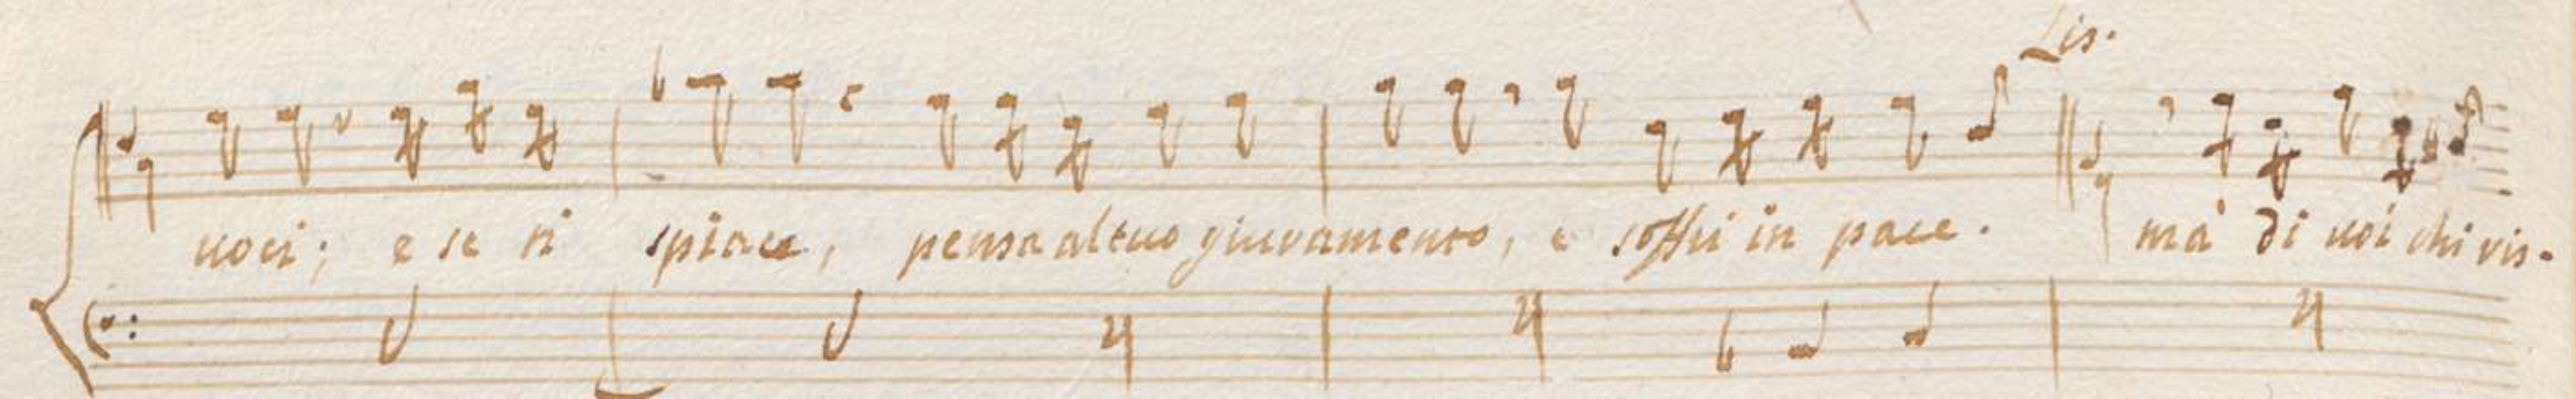 Lis.
uoci; e se ti spiace, pensa al tuo giuramento, e soffri in pace. mà di uoi chi vis-